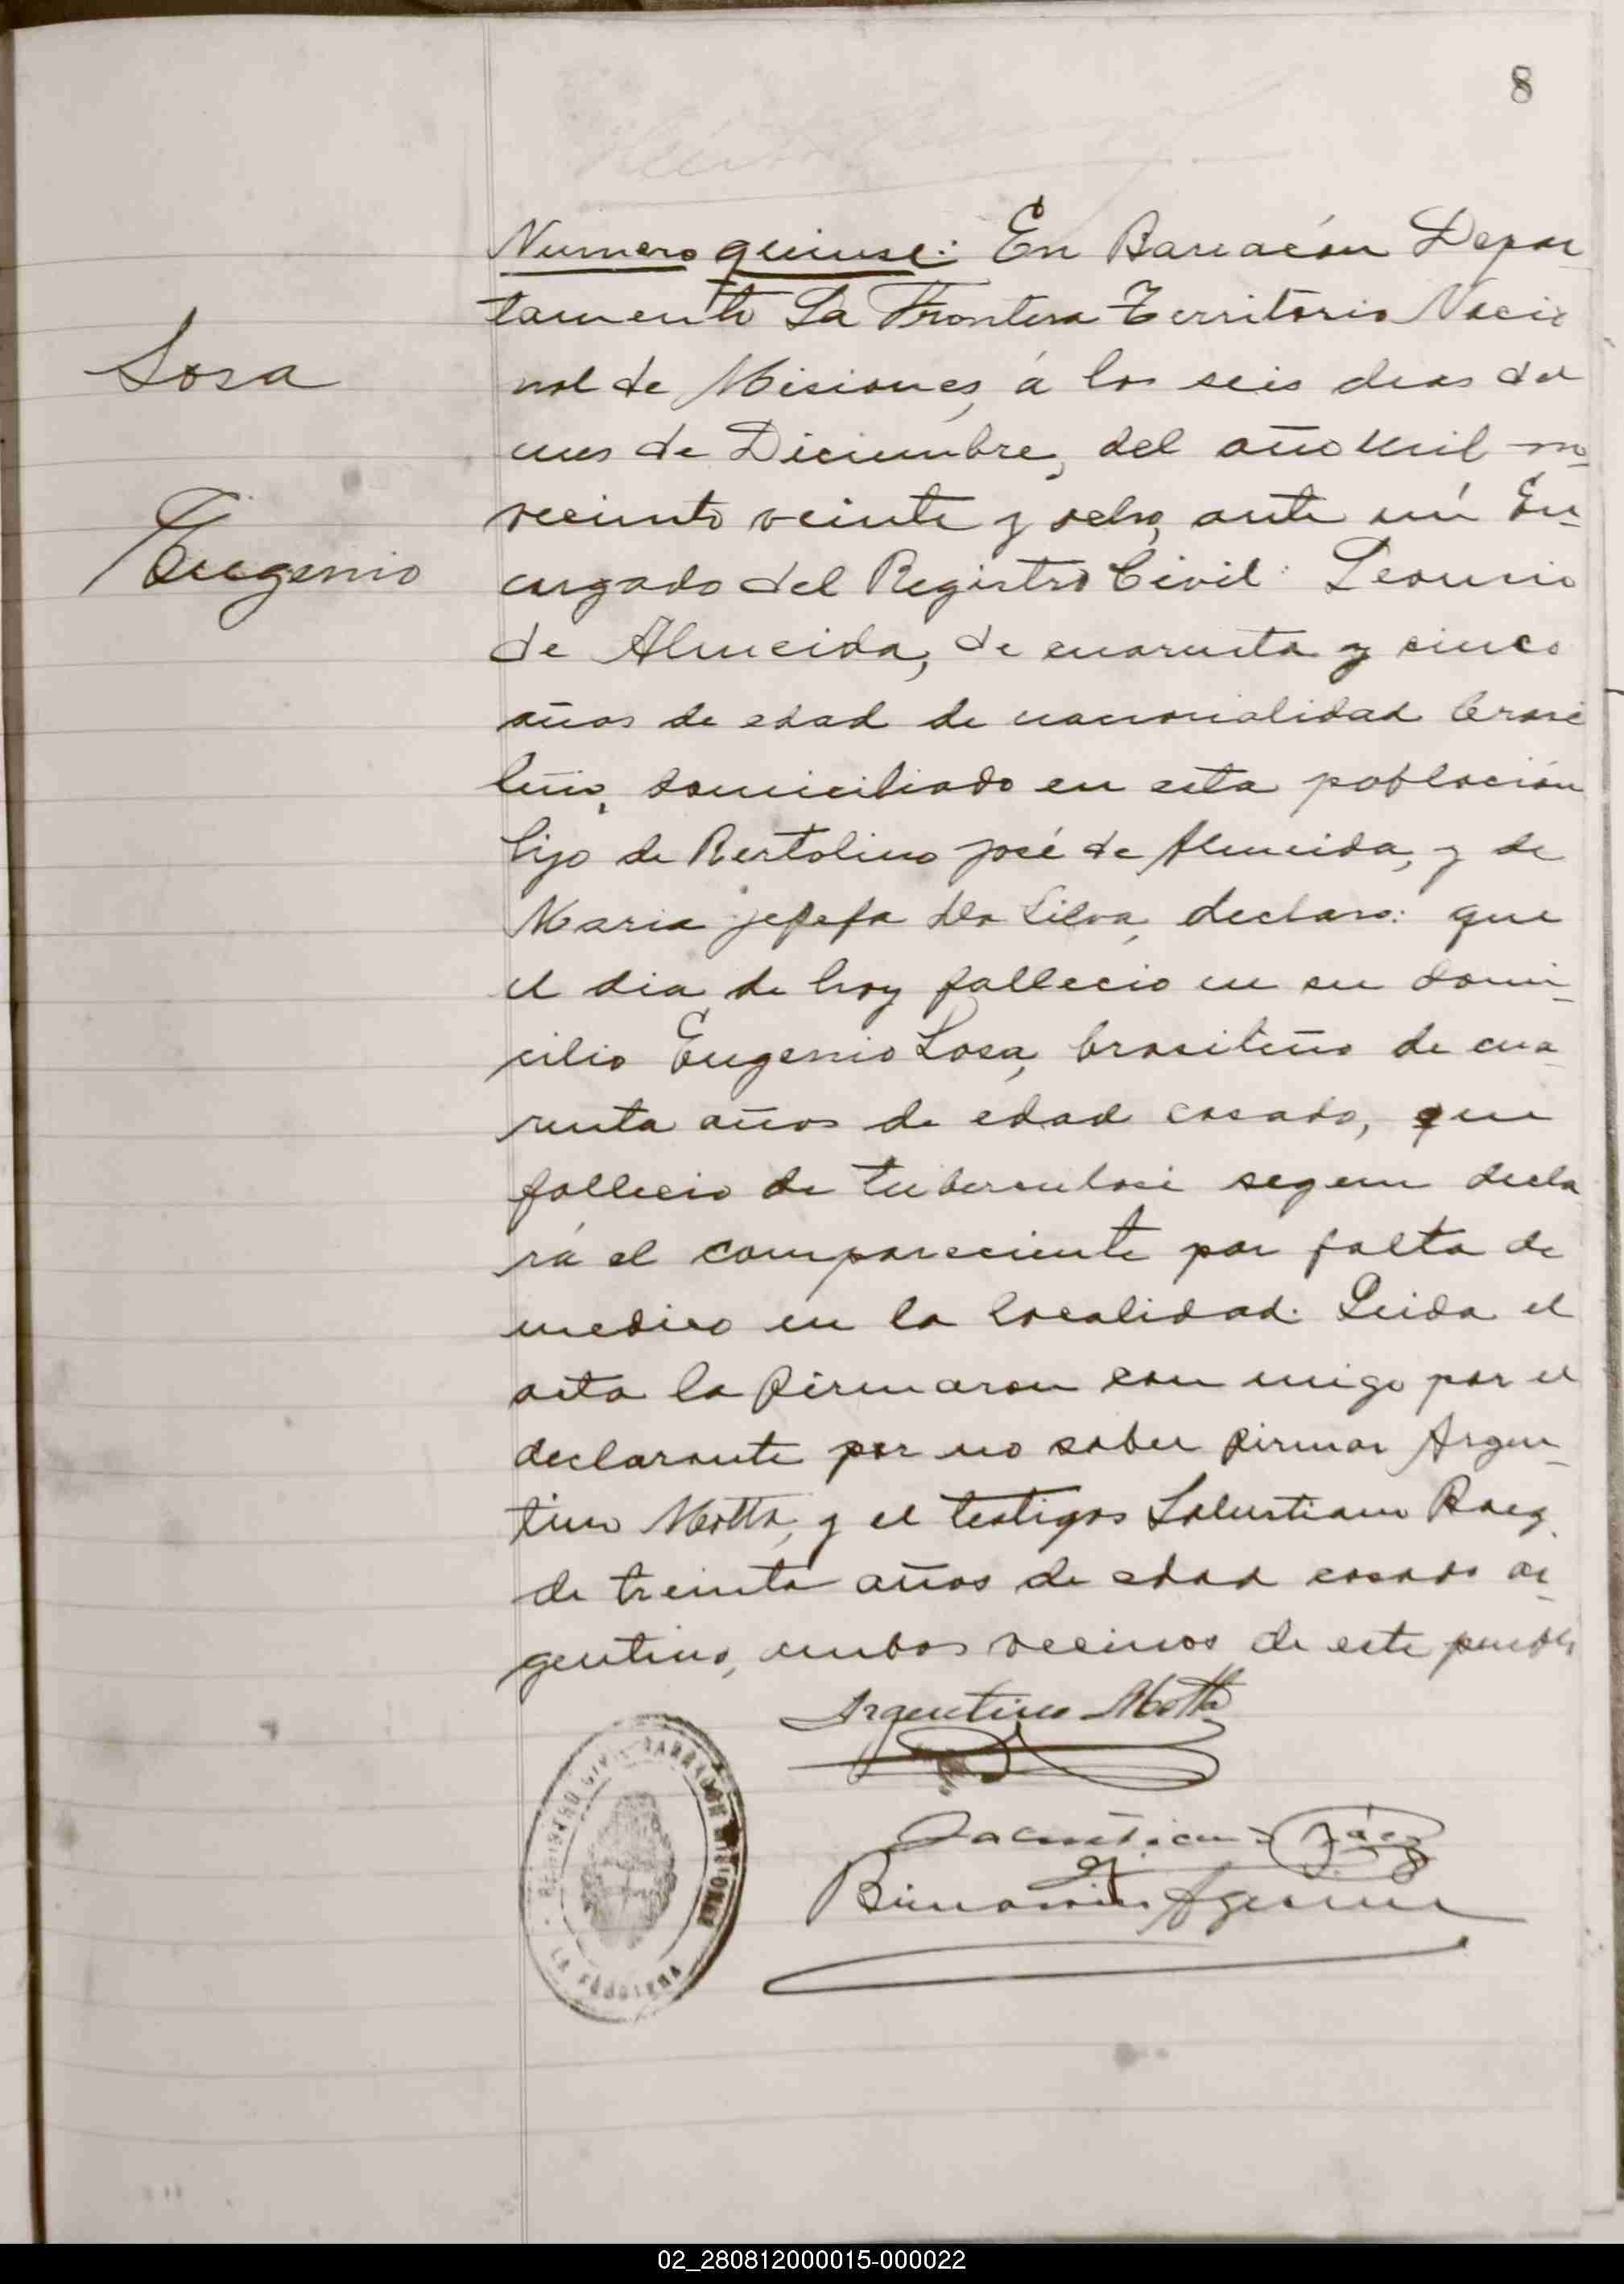 8
Numero quinse: En Barracón Depar
tamento La Frontera Territorio Nacio
nal de Misiones, á los seis dias del
mes de Diciembre, del año mil no-
veciento veinte y ocho, ante mi En-
cargado del Registro Civil: Leoncio
de Almeida, de cuarenta y cinco
años de edad de nacionalidad brasi
leño, domiciliado en esta población
hijo de Bertolino José de Almeida, y de
Maria Jefefa da Silva, declaro: que
el dia de hoy fallecio en su domi-
cilio Eugenio Sosa, brasileño de cua-
renta años de edad casado, que
fallecio de tuberculosi segun decla
rá el compareciente por falta de
medico en la localidad. Leida el
acta la firmaron con migo por el
declarante por no saber firmar Argen-
tino Motta, y el testigos Salustiano Baez
de treinta años de edad casado ar-
gentino, ambos vecinos de este pueblo
Sosa
Eugenio
Argentino Motta
Báez
REGISTRO CIVIL BARRACON MISIONES
LA FRONTERA
02_280812000015-000022